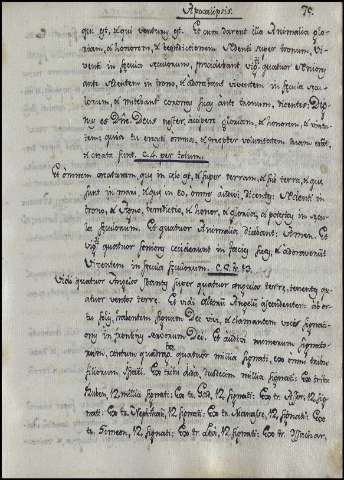 Apocalipsis. 79.
qui est, & qui venturus est. Et cum darent illa Animalia glo-
riam, & honorem, & benedictionem Sedenti super tronum, Vi-
venti in secula seculorum, procidebant vigti quatuor Seniores
ante Sedentem in trono, & adorabant viventem in secula secu-
lorum, & mitebant coronas suas ante tronum, dicentes: Dig-
nus es Dñe Deus noster, accipere gloriam, & honorem, & virtu-
tem: quia tu creasti omnia, & propter voluntatem tuam erant,
& creata sunt. C. 4. per totum.
Et omnem creaturam, quæ in cælo est, & super terram, & sub terra, & quæ
sunt in mari, & quæ in eo, omnes audivi; dicentes: Sedenti in
trono, & Agno, benedictio, & honor, & gloria, & potestas in secu-
la seculorum. Et quatuor Animalia dicebant: Amen. Et
vigti quatuor seniores ceciderunt in facies suas, & adoraverunt
Viventem in secula seculorum. C. 5. 13.
Vidi quatuor Angelos stantes super quatuor angulos terræ, tenentes qu-
atuor ventos terræ. Et vidi alterum Angelum ascendentem ab or-
tu solis, habentem signum Dei vivi, & clamantem voce:
in frontibus servorum Dei. Et audivi numerum signato-
rum, centum quadraginta quatuor millia signati, ex omni tribu
filiorum Israel. Ex tribu Juda, duodecim millia signati: Ex tribu
Ruben, 12 millia signati: Ex tr. Gad, 12 millia signati: Ex tr. Aser, 12 sig-
nati: Ex tr. Nepthali, 12 signati: Ex tr. Manasse, 12 signati: Ex
tr. Simeon, 12 signati: Ex tr. Levi, 12 signati: Ex tr. Issachar,